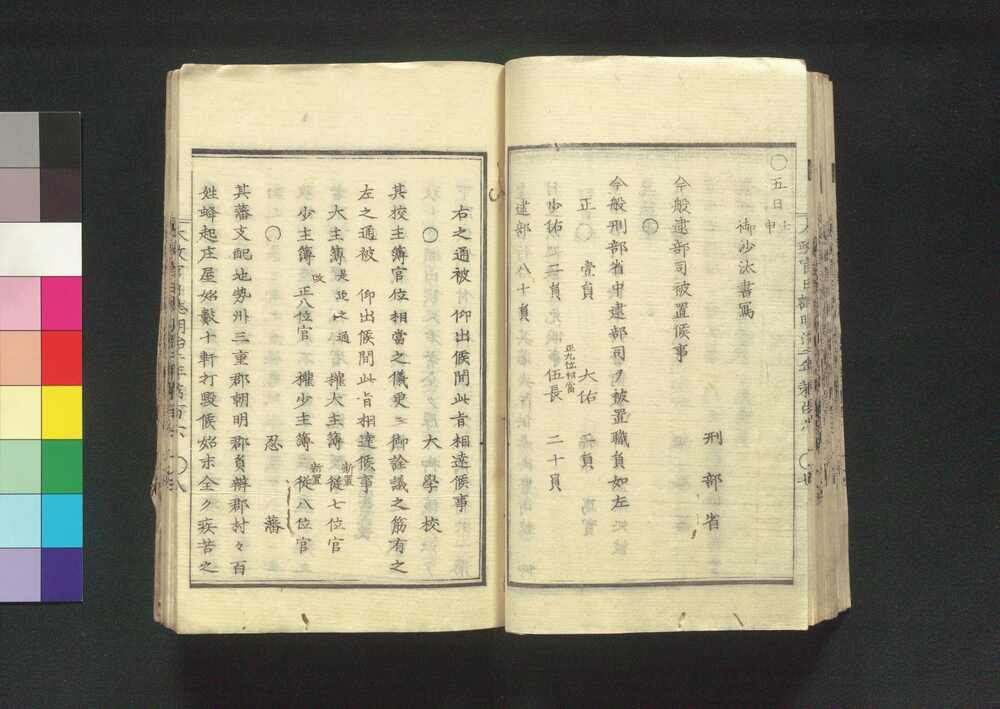 〇五日 壬申
御沙汰書寫
刑部省
今般逮部司被置候事
〇
今般刑部省中逮部司ヲ被置職員如左
正 壹員 大佑 員
少佑 二員 正九位相當 伍長 二十員
逮部 八十員
右之通被仰出候間此旨相達候事
〇 大學校
其校主簿官位相當之儀更ニ御詮議之筋有之
左之通被 仰出候間此旨相達候事
大主簿 是迠之通 權大主簿 新置 從七位官
少主簿 改 正八位官 權少主簿 新置 從八位官
〇 忍藩
其藩支配地勢州三重郡朝明郡員辨郡村々百
姓蜂起庄屋始數十軒打毀候始末全ク疾苦之